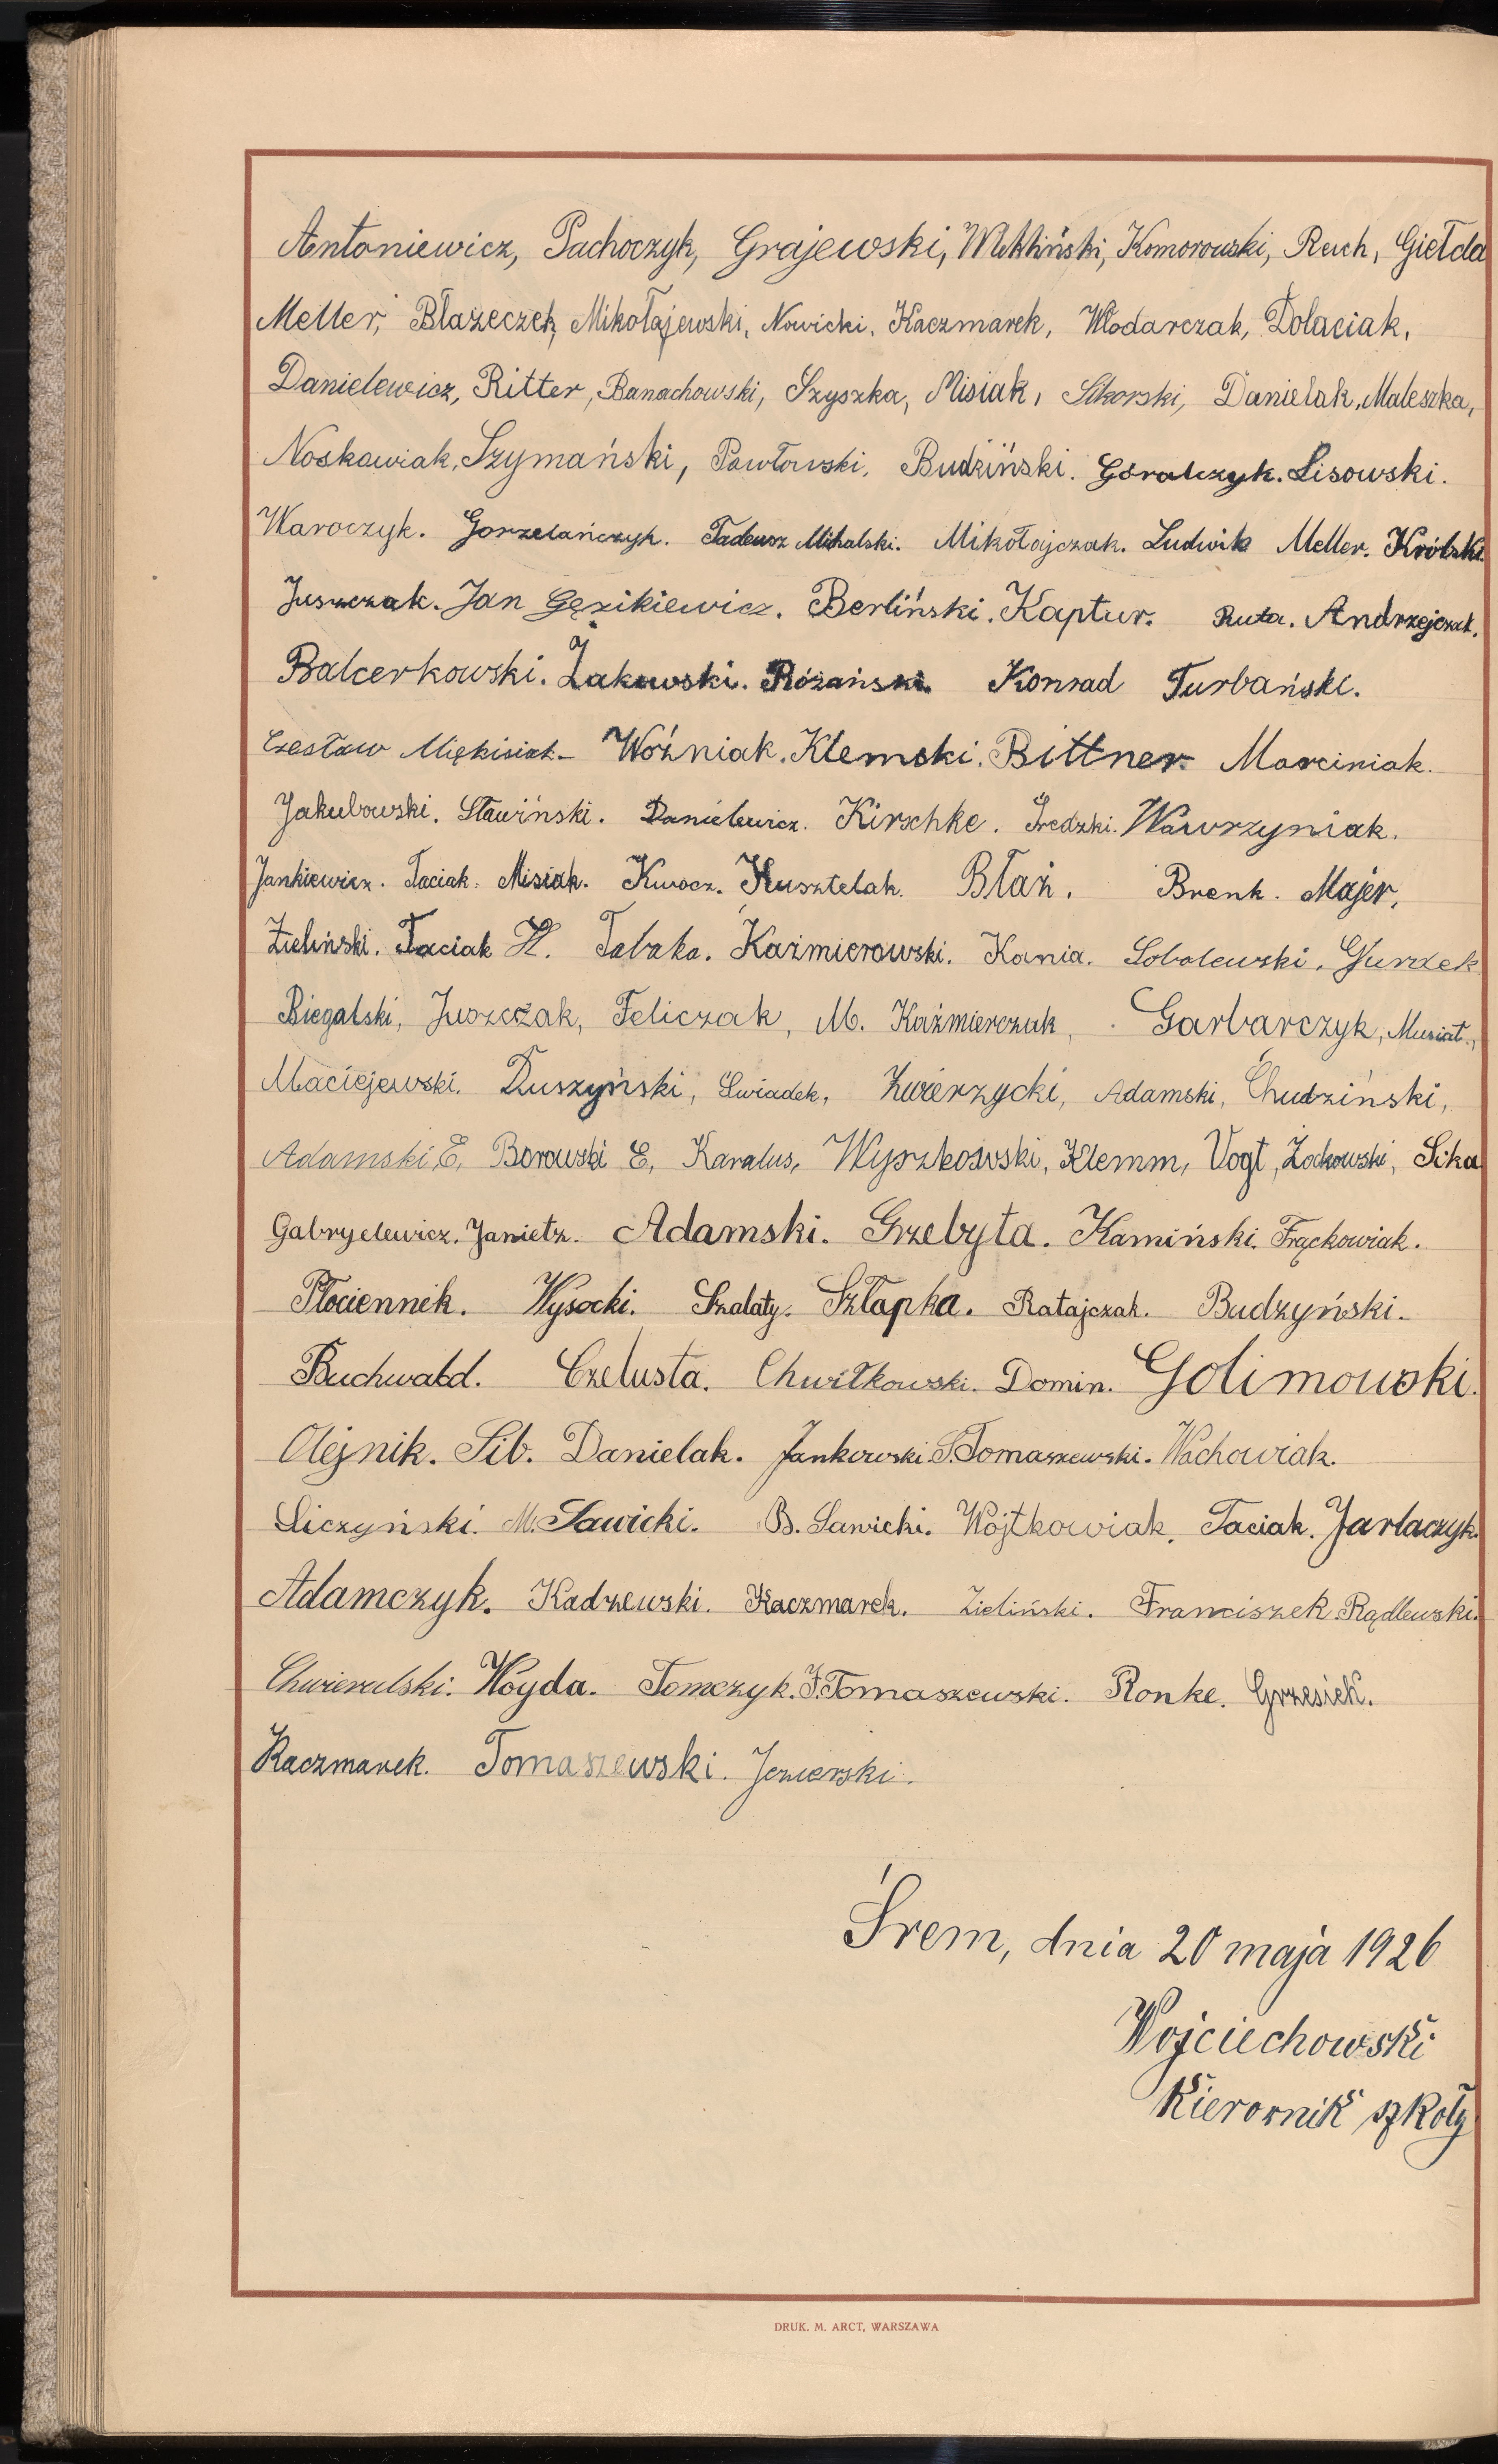 Antoniewicz, Pachoczyk, Grajewski, Komorowski, Reich, Giełda
Meller, Błażeczek, Mikołajewski, Nowicki, Kaczmarek, Włodarczak, Dolaciak,
Danielewicz, Ritter, Banachowski, Szyszka, Misiak, Sikorski, Danielak, Maleszka,
Noskowiak, Szymański, Pawłowski, Budziński. Góralczyk. Lisowski.
Waroczyk. Gorzelańczyk. Tadeusz Mihalski. Mikołajczak. Ludwik Meller. Królski.
Juszczak. Jan Gęzikiewicz. Berliński. Kaptur. Ruta. Andrzejczak.
Balcerkowski. Żakowski. Różański. Konrad Turbański.
Czesław Miękisiak. Woźniak. Klemski. Bittner. Marciniak.
Jakubowski. Sławiński. Danielewicz. Kirschke. Średzki. Wawrzyniak.
Jankiewicz. Taciak. Misiak. Kwocz. Kusztelak. Błaż. Brenk. Majer,
Zieliński. Taciak H. Tabaka. Kaźmierowski. Kania. Sobolewski. Gurzek
Biegalski, Juszczak, Feliczak, M. Kaźmierczak, Garbarczyk, Musiał,
Maciejewski. Duszyński, Świadek, Zwierzycki, Adamski, Chudziński,
Adamski E, Borowski E, Karalus, Wyszkowski, Klemm, Vogt, Żochowski, Sika
Gabryelewicz. Janietz. Adamski. Grzebyta. Kamiński. Frąckowiak.
Płociennik. Wysocki. Szalaty. Szłapka. Ratajczak. Budzyński.
Buchwald. Czelusta. Chwiłkowski. Domin. Golimowski.
Olejnik. Sib. Danielak. Jankowski. S. Tomaszewski. Wachowiak.
Liczyński. M. Sawicki. B. Sawicki. Wojtkowiak. Taciak. Jarlaczyk.
Adamczyk. Kadzewski. Kaczmarek. Zieliński. Franciszek Rądlewski.
Chwieralski. Woyda. Tomczyk. F. Tomaszewski. Ronke. Grzesiek.
Kaczmarek. Tomaszewski. Jezierski.
Śrem, dnia 20 maja 1926
Wojciechowski
Kierownik szkoły
DRUK. M. ARCT, WARSZAWA